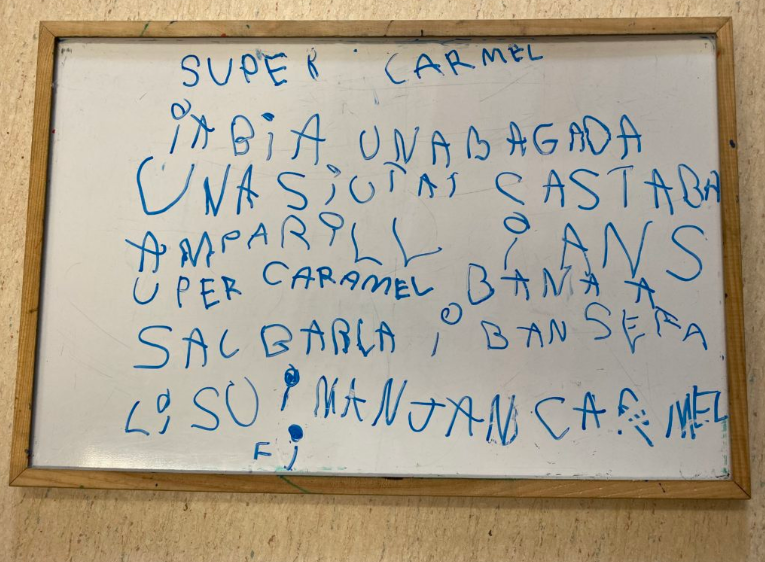 SUPER CARMEL
iABiA UNABAGADA
UNA SiUTAT CASTABA
AMPARiLL i ANS
UPER CARAMEL BANA A
SALBARLA i BAN SERA
Li SU i MANJAN CARMEL
Fi